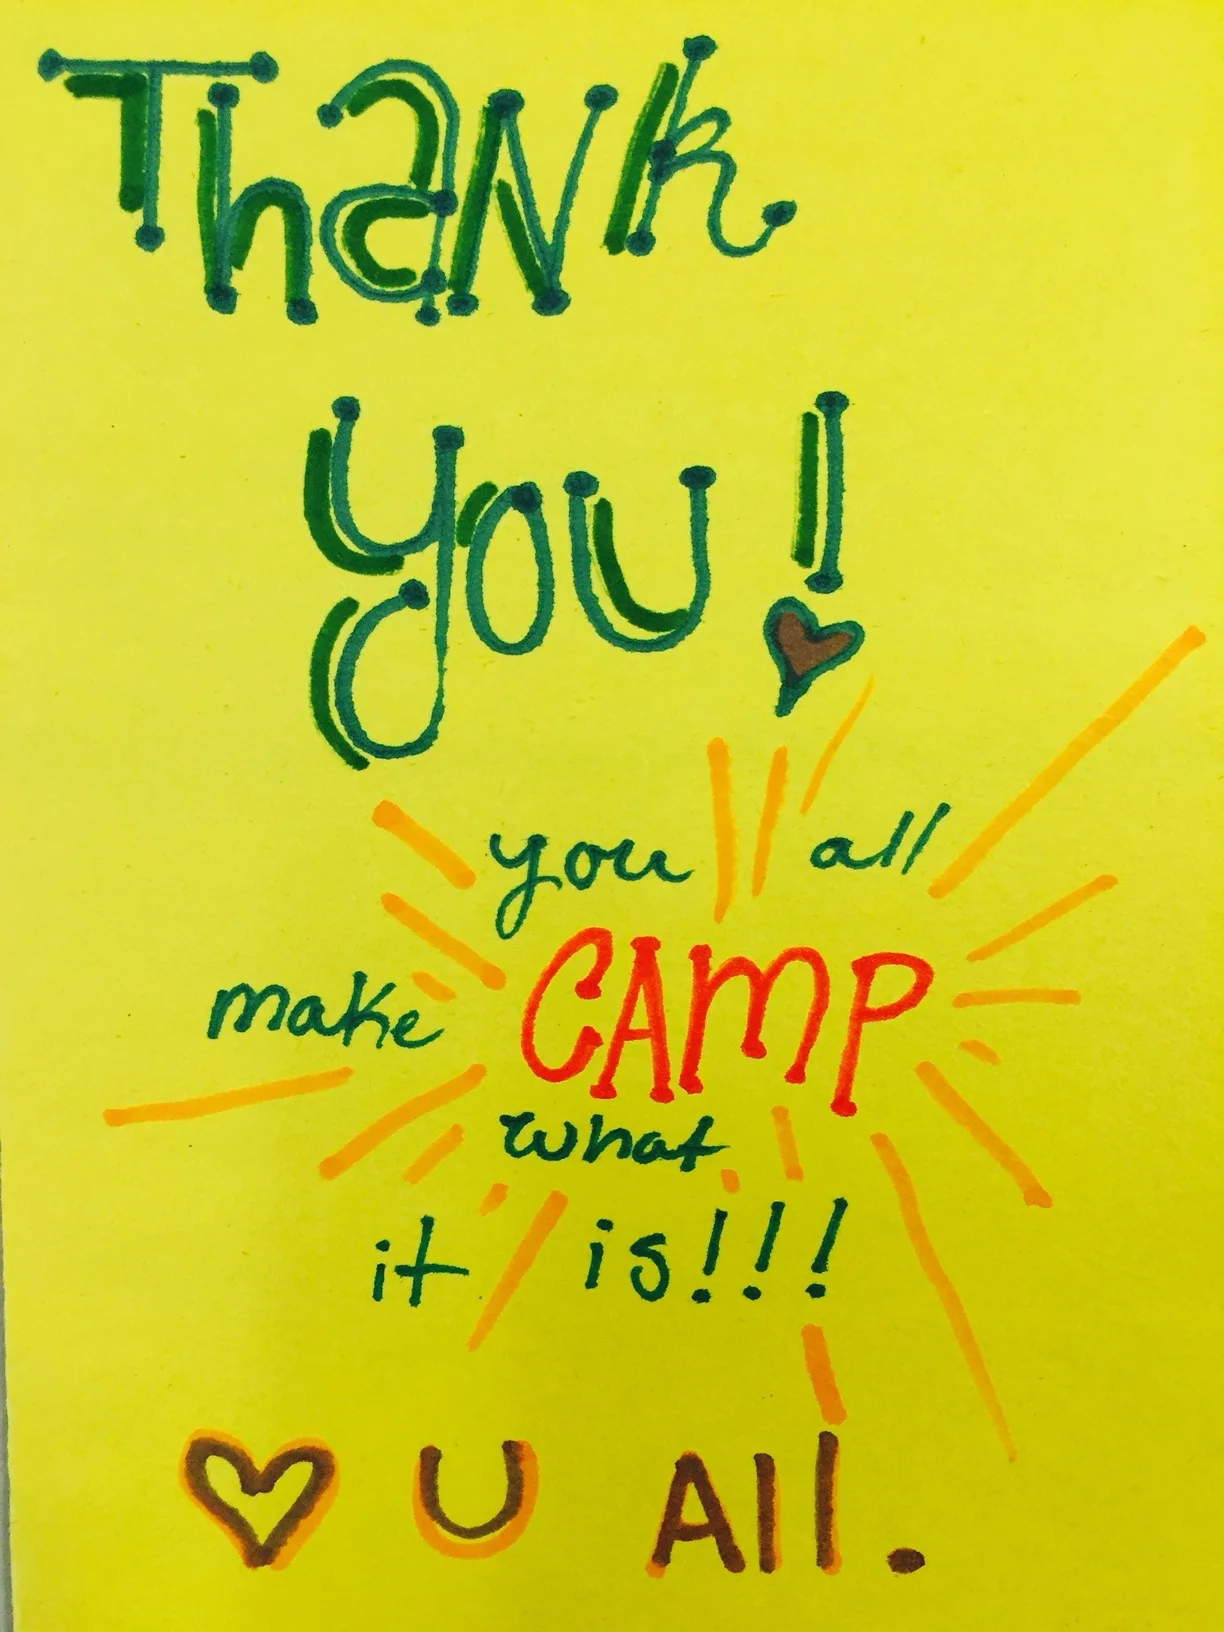 ThaNk
you!
you all
make CAmP
what
it is!!!
♡ U All.